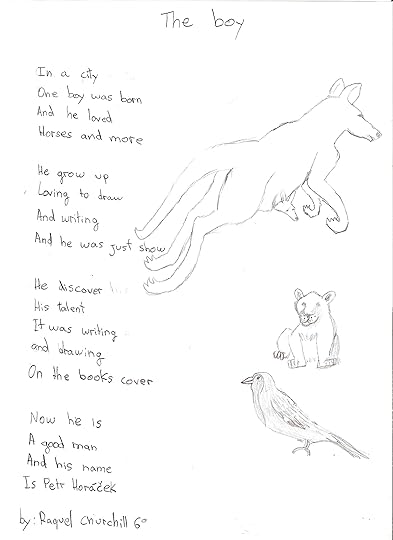 The boy
In a city
One boy was born
And he loved
Horses and more
He grow up
Loving to draw
And writing
And he was just show
He discover
His talent
It was writing
and drawing
On the books cover
Now he is
A good man
And his name
Is Petr Horáček
by: Raquel Churchill 6º